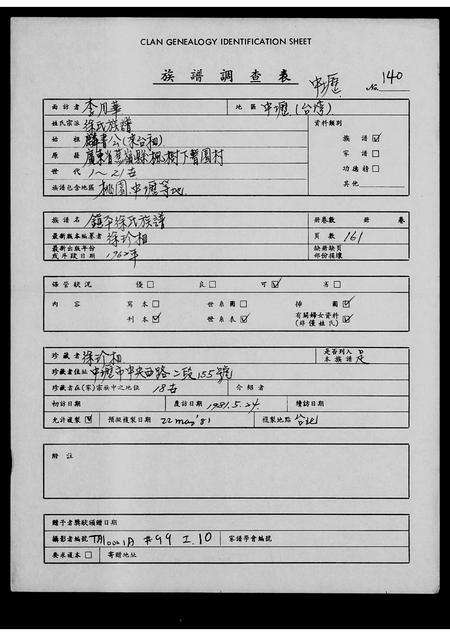 CLAN GENEALOGY IDENTIFICATION SHEET
族譜調查表 中壢 No. 140
面訪者 李月華 地區 中壢(台灣)
姓氏宗派 徐氏族譜 資料類別
始祖 麟書公(來台祖) 族譜 ☑
原縣 廣東省蕉嶺縣 家譜 ☐
世代 1~21世 功德榜 ☐
族譜包含地區 桃園中壢等地 其他
族譜名 鎮平徐氏族譜 冊卷數 冊 卷
最新版本編纂者 徐珍相 頁數 161
最新出版年份 缺冊缺頁
或手段日期 1962年 部份損壞
保管狀況 優☐ 良☐ 可☑ 劣☐
內容 寫本☐ 世系圖☐ 插圖☑
刊本☑ 世系表☑ 有關婦女資料(非僅姓氏)☑
珍藏者 徐珍相 是否列入本族譜 是
珍藏者住址 中壢市中央西路二段155號
珍藏者在(家)宗族中之地位 18世 介紹者
初訪日期 度訪日期 1981.5.24. 續訪日期
允許複製☑ 預擬複製日期 22 may '81 複製地點 台北
附註
贈予者獎狀頒贈日期
攝影者編號 #99 I.10 家譜學會編號
要求複本☐ 寄贈地址